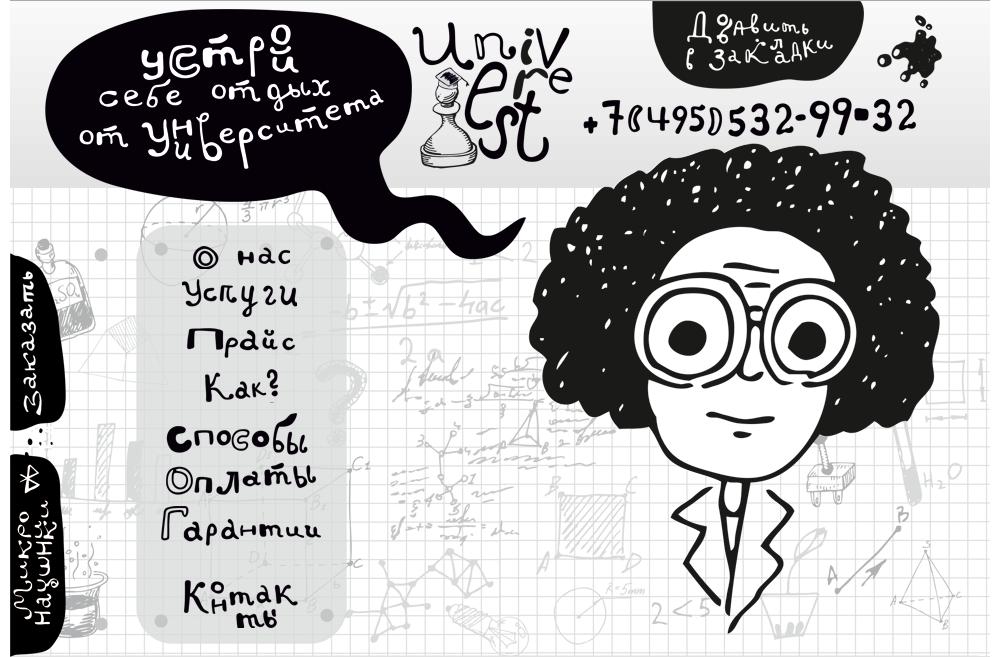 устрой
себе отдых
от Университета
Univ
ere
st
Добавить
в Закладки
+7(495)532-99-32
О нас
Услуги
Прайс
Как?
Способы
Оплаты
Гарантии
Контак
ты
Заказать
Микро
наушники
b±√b²-4ac
C1
H₂O
R=5mm
2<5
A
B